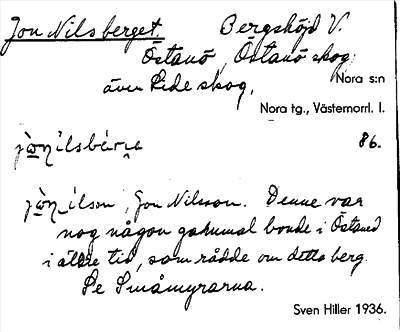 Jon Nils berget. Bergshöjd V.
Östanö, Östanö skog,
även Lide skog, Nora s:n
Nora tg., Västernorrl. l.
86.
Jon Nilsson. Denne var
nog någon gammal bonde i Östanö
i äldre tid, som rådde om detta berg.
Se Småmyrarna.
Sven Hiller 1936.